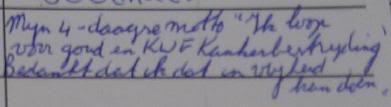 Mijn 4-daagse motto "Ik loop
voor goud en KWF Kankerbestrijding
Bedankt dat ik dat in vrijheid
kan doen,